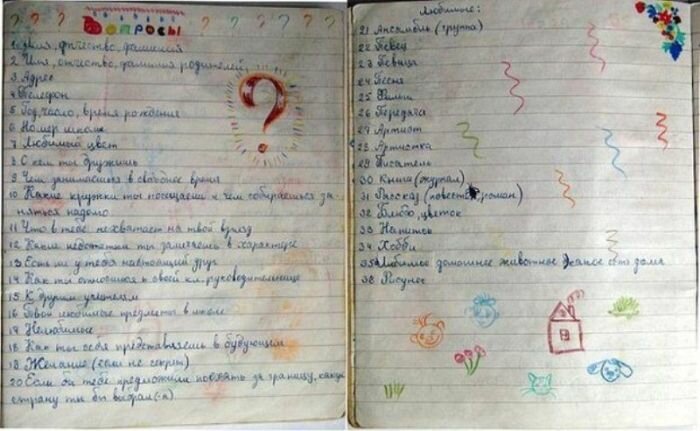 Вопросы
1 Имя, отчество, фамилия
2 Имя, отчество, фамилия родителей
3 Адрес
4 Телефон
5 Год, число, время рождения
6 Номер школы
7 Любимый цвет
8 С кем ты дружишь
9 Чем занимаешься в свободное время
10 Какие кружки ты посещаешь и чем собираешься за-
няться надолго
11 Что в тебе не хватает на твой взгляд
12 Какие недостатки ты замечаешь в характере
13 Есть ли у тебя настоящий друг
14 Как ты относишься к своей кл. руководительнице
15 К другим учителям
16 Твои любимые предметы в школе
17 Нелюбимые
18 Как ты себя представляешь в будующем
19 Желание (если не секрет)
20 Если бы тебе предложили поехать за границу, какую
страну ты бы выбрал(-а)
Любимые:
21 Ансамбль (группа)
22 Певец
23 Певица
24 Песня
25 Фильм
26 Передача
27 Артист
28 Артистка
29 Писатель
30 Книга (журнал)
31 Рассказ (повесть, роман)
32 Блюдо, цветок
33 Напиток
34 Хобби
35 Любимое домашнее животное, какое есть дома
36 Рисунок